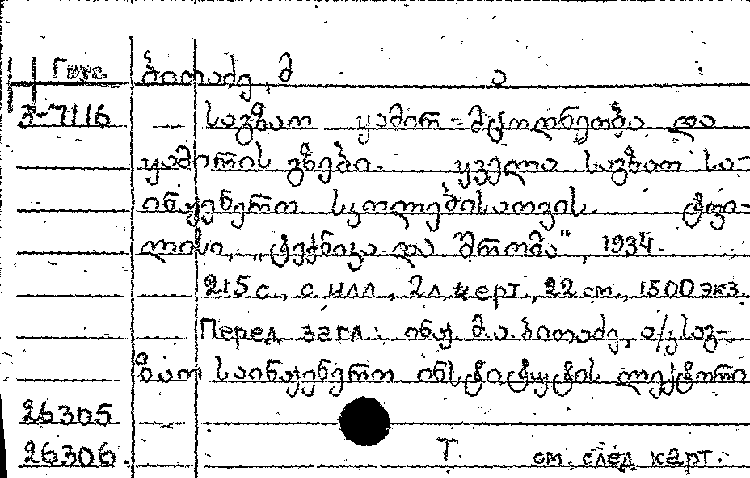 Груз. ბითაძე, მ ა
3-7116 საგზაო ყამირ-მცოდნეობა და
ყამირის გზები. ყველა საგზაო სა-
ინჟენერო სკოლებისათვის. ტფი-
ლისი, „ტექნიკა და შრომა“, 1934.
215 с., с илл., 2 л. черт., 22 см., 1500 экз.
Перед загл.: ინჟ. მ.ა. ბითაძე, ა/კ საგ-
ზაო საინჟენერო ინსტიტუტის ლექტორი
26305
26306. Т. см. след. карт.